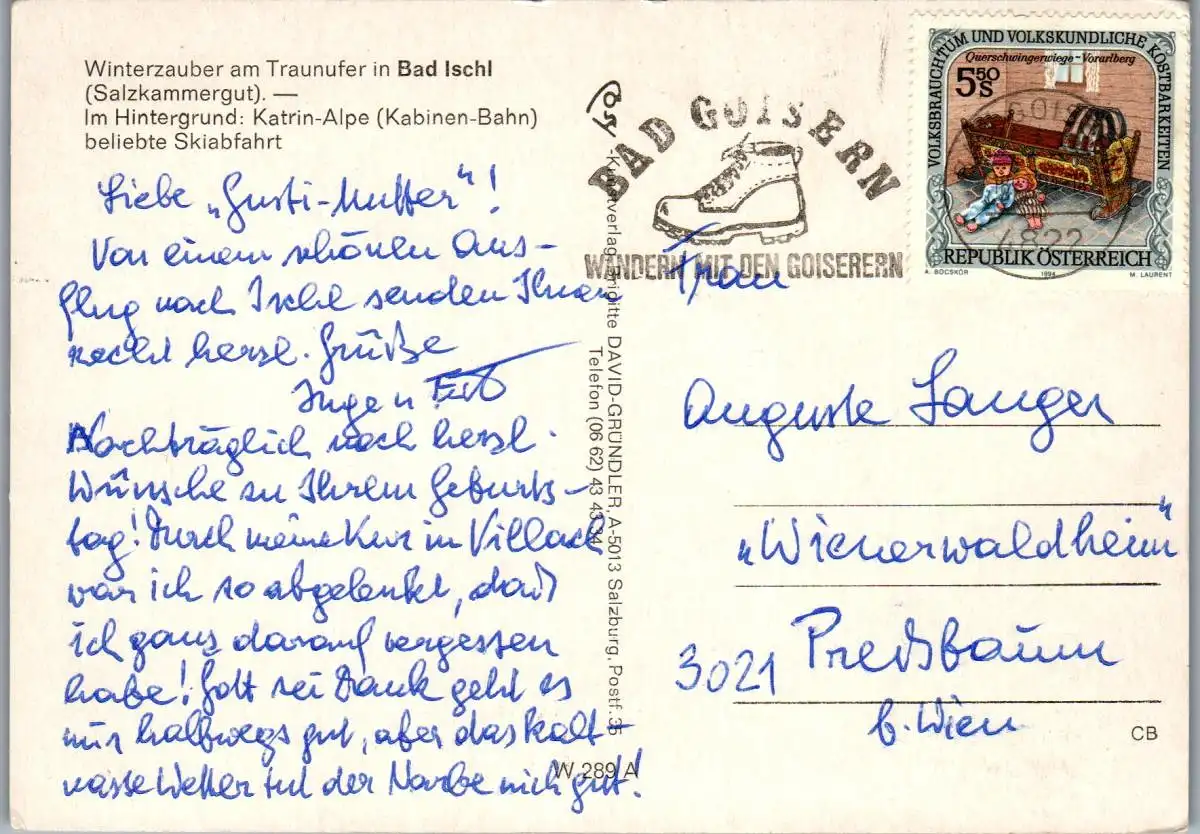 Winterzauber am Traunufer in Bad Ischl
(Salzkammergut). —
Im Hintergrund: Katrin-Alpe (Kabinen-Bahn)
beliebte Skiabfahrt
Liebe „Gusti-Mutter"!
Von einem schönen Aus-
flug nach Ischl senden Ihnen
recht herzl. Grüße
Inge u.
Nachträglich noch herzl.
Wünsche zu Ihrem Geburts-
tag! Durch meine Kur in Villach
war ich so abgelenkt, daß
ich ganz darauf vergessen
habe! Gott sei Dank geht es
mir halbwegs gut, aber das kalt-
nasse Wetter tut der Narbe nich gut!
Kunstverlag Brigitte DAVID-GRÜNDLER, A-5013 Salzburg, Postf. 35
Telefon (06 62) 43 43
W 289 A
BAD GOISERN
WANDERN MIT DEN GOISERERN
VOLKSBRAUCHTUM UND VOLKSKUNDLICHE KOSTBARKEITEN
Querschwingerwiege - Vorarlberg
5.50 S
GOIS
4822
REPUBLIK ÖSTERREICH
A. BÖCSKÖR 1994 M. LAURENT
Frau
Auguste Langer
„Wienerwaldheim"
3021 Preßbaum
b. Wien
CB